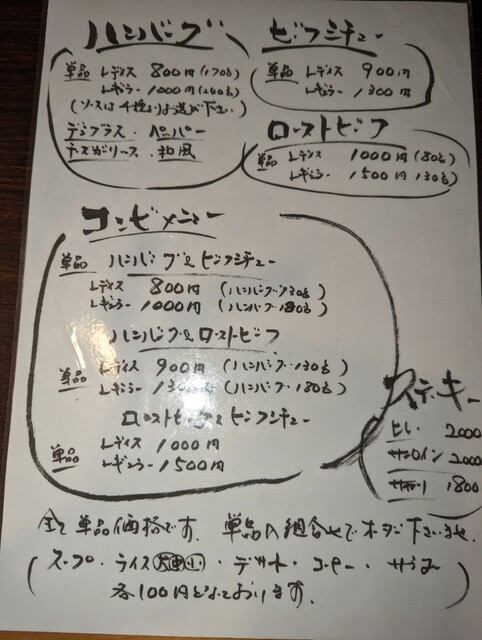 ハンバーグ
単品 レディス 800円(170g)
レギュラー 1000円(240g)
(ソースは4種よりお選び下さい)
デミグラス・ペッパー
和風
ビーフシチュー
単品 レディス 900円
レギュラー 1300円
ローストビーフ
単品 レディス 1000円(80g)
レギュラー 1500円(130g)
コンビメニュー
単品 ハンバーグ&ビーフシチュー
レディス 800円(ハンバーグ130g)
レギュラー 1000円(ハンバーグ180g)
ハンバーグ&ローストビーフ
単品 レディス 900円(ハンバーグ130g)
レギュラー 1300円(ハンバーグ180g)
ローストビーフ&ビーフシチュー
単品 レディス 1000円
レギュラー 1500円
ステーキ
ヒレ 2000
サーロイン 2000
1800
全て単品価格です。単品の組合せでオーダー下さいませ。
(スープ・ライス大中小・デザート・コーヒー・サラダ
各100円となっております。)